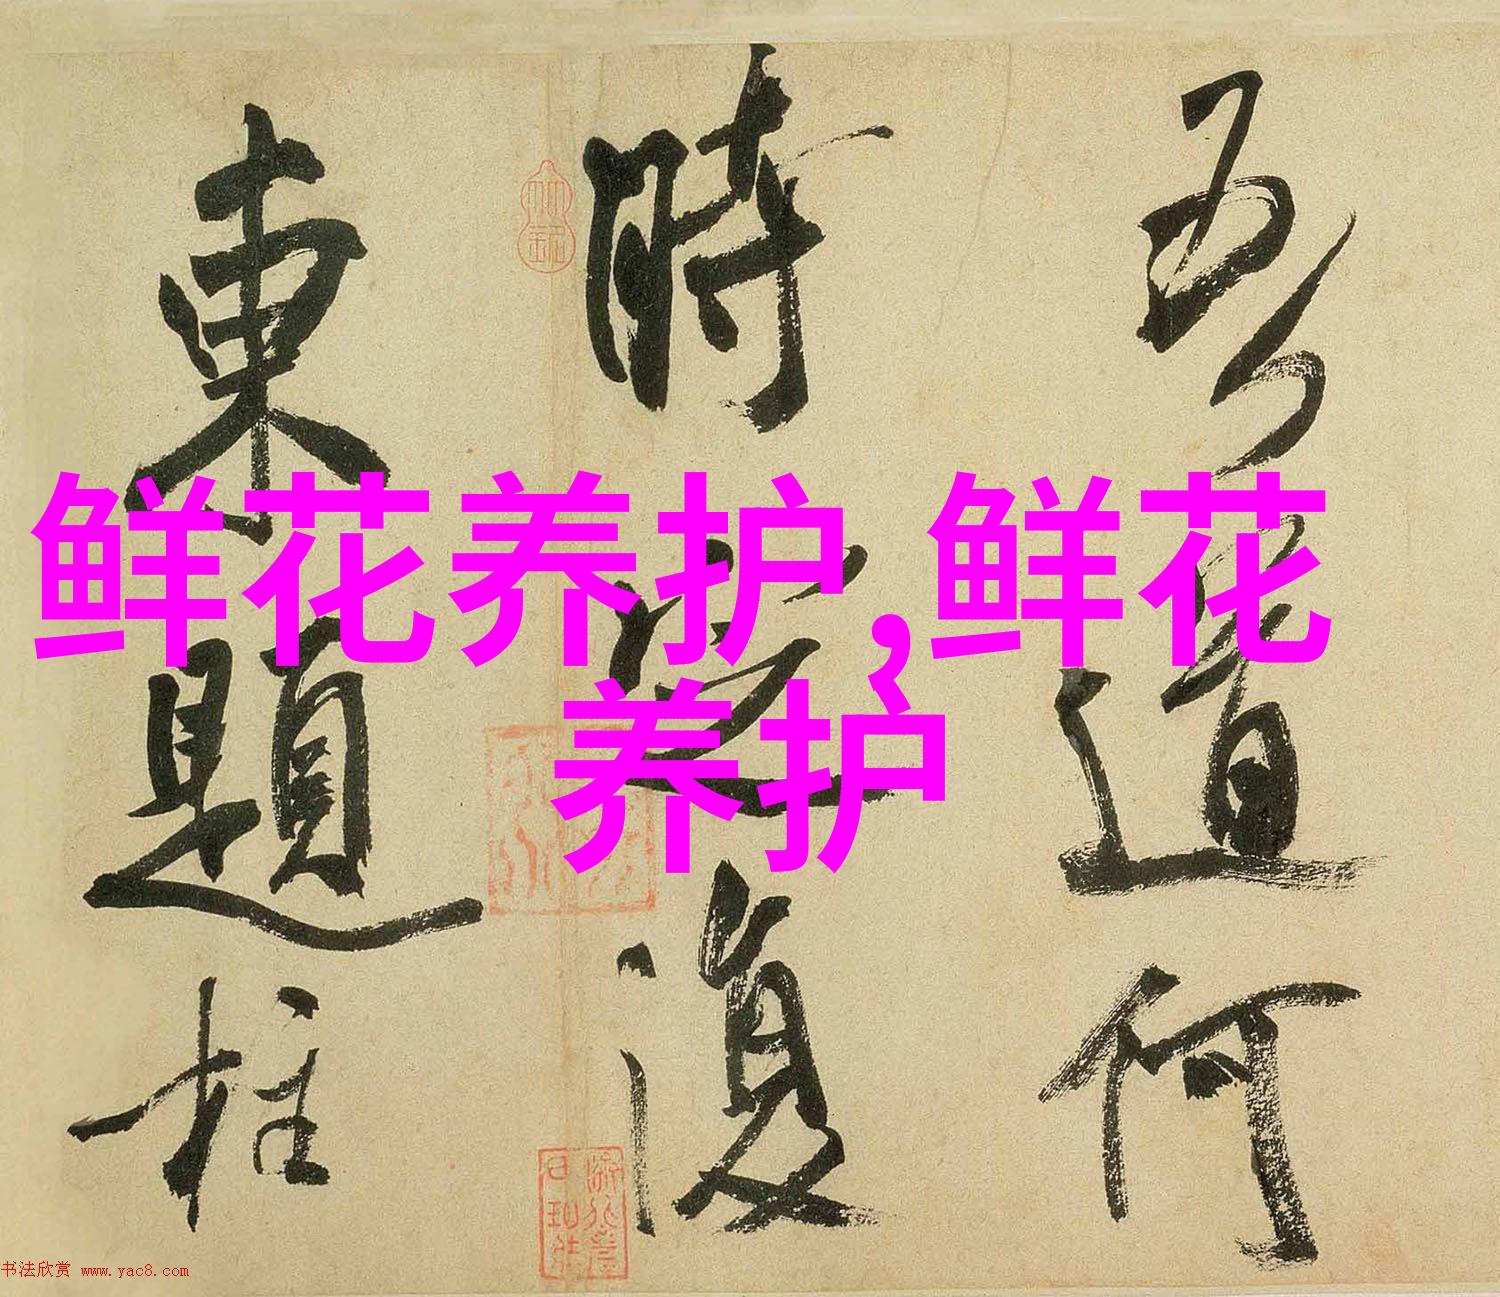 吾道何
時證復
東題柱
鲜花养护,鲜花
养护
书法欣赏 www.yac8.com